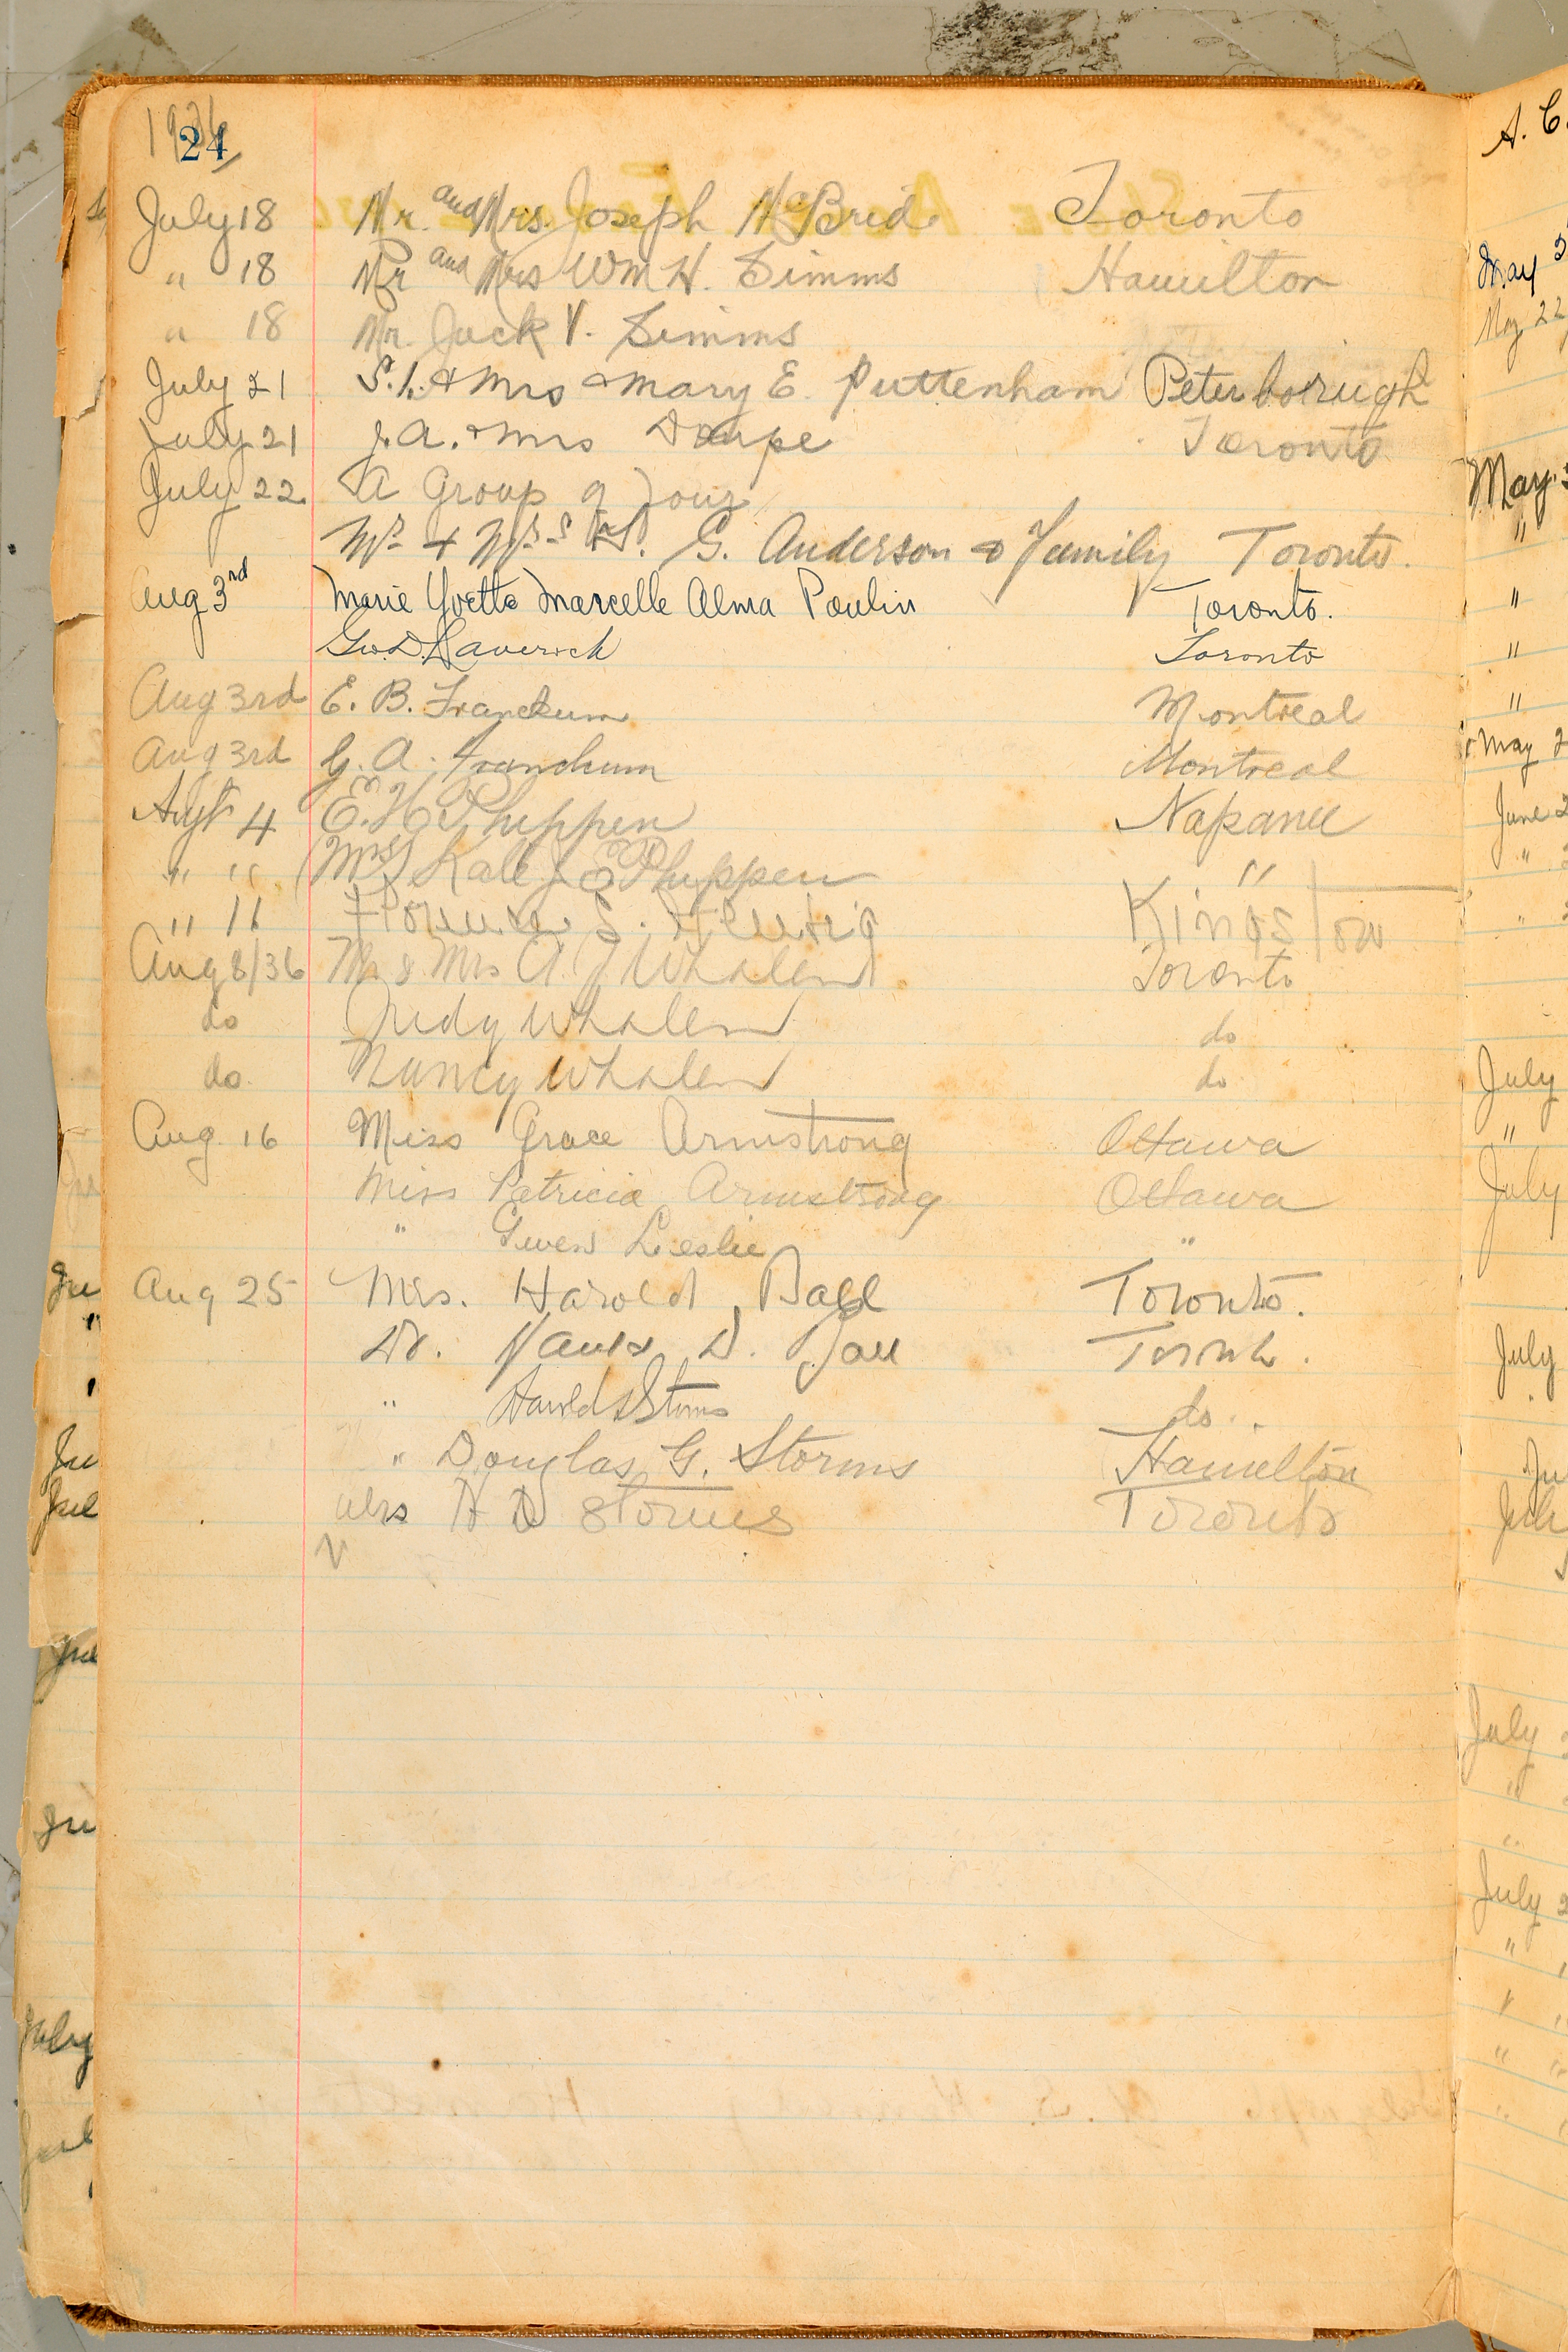 1936
24
July 18 Mr. and Mrs. Joseph McBride Toronto
" 18 Mr and Mrs Wm H. Simms Hamilton
" 18 Mr. Jack V. Simms
July 21 S.L. & Mrs & Mary E. Puttenham Peterborough
July 21 J.A. & Mrs Doupe Toronto
July 22 A Group of Four
Mr & Mrs H. G. Anderson & Family Toronto.
Aug 3rd Marie Yvette Marcelle Alma Poulin Toronto.
Geo. D. Laverick Toronto
Aug 3rd E. B. Franckum Montreal
Aug 3rd G. A. Franckum Montreal
Augt 4 E. H. Phippen Napanee
" " Mrs Phippen "
" " Florence S. Kingston
Aug 8/36 Mr & Mrs A. J Whalen Toronto
do Judy Whalen do
do Nancy Whalen do
Aug. 16 Miss Grace Armstrong Ottawa
Miss Patricia Armstrong Ottawa
" Gwen Leslie "
Aug 25 Mrs. Harold Ball Toronto.
Dr. D. Ball Toronto.
" Harold Storms do.
" Douglas G. Storms Hamilton
Mrs H D Storms Toronto
A. C.
May
May 22
May
"
"
"
"
May 2
June 2
"
"
July
"
July
July
July
July
"
"
July 2
"
"
"